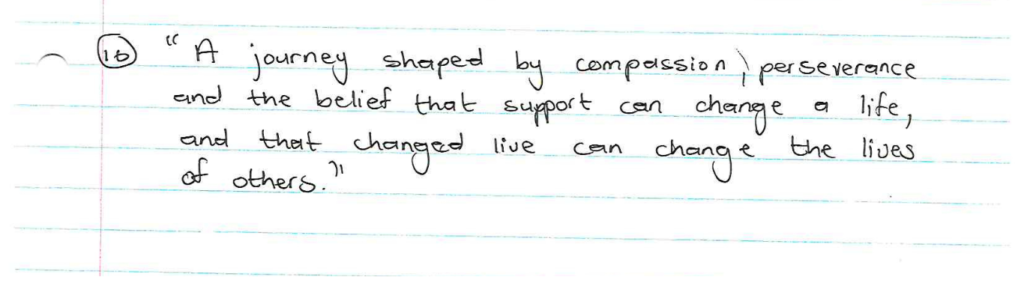 16 "A journey shaped by compassion, perseverance
and the belief that support can change a life,
and that changed live can change the lives
of others."